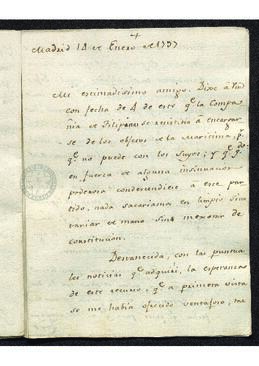 Madrid 14 de Enero de 1797
Mi estimadisimo amigo. Dixe à Vmd
con fecha de 4 de este qe la Compa-
ñia de Filipinas se resistiria à encargar
se de los objetos de la Maritima, p.
qe no puede con los suyos; y qe si
en fuerza de alguna insinuacion
poderosa condescendiese à este par
tido, nada sacariamos en limpio sino
variar de mano sin mexorar de
constitucion.
Desvanecida, con las puntua
les noticias qe adquirì, la esperanza
de este recurso, qe a primera vista
se me habia ofrecido ventajoso,